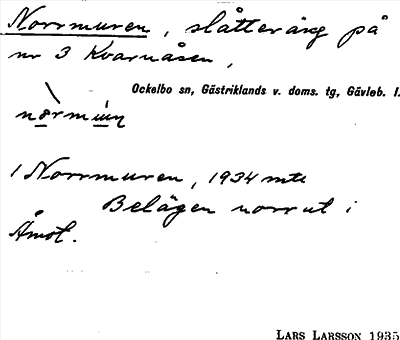 Norrmuren, slåtteräng på
nr 3 Kvarnåsen,
Ockelbo sn, Gästriklands v. doms. tg, Gävleb. l.
1 Norrmuren, 1934 mtl
Belägen norrut i
Åmot.
LARS LARSSON 1935